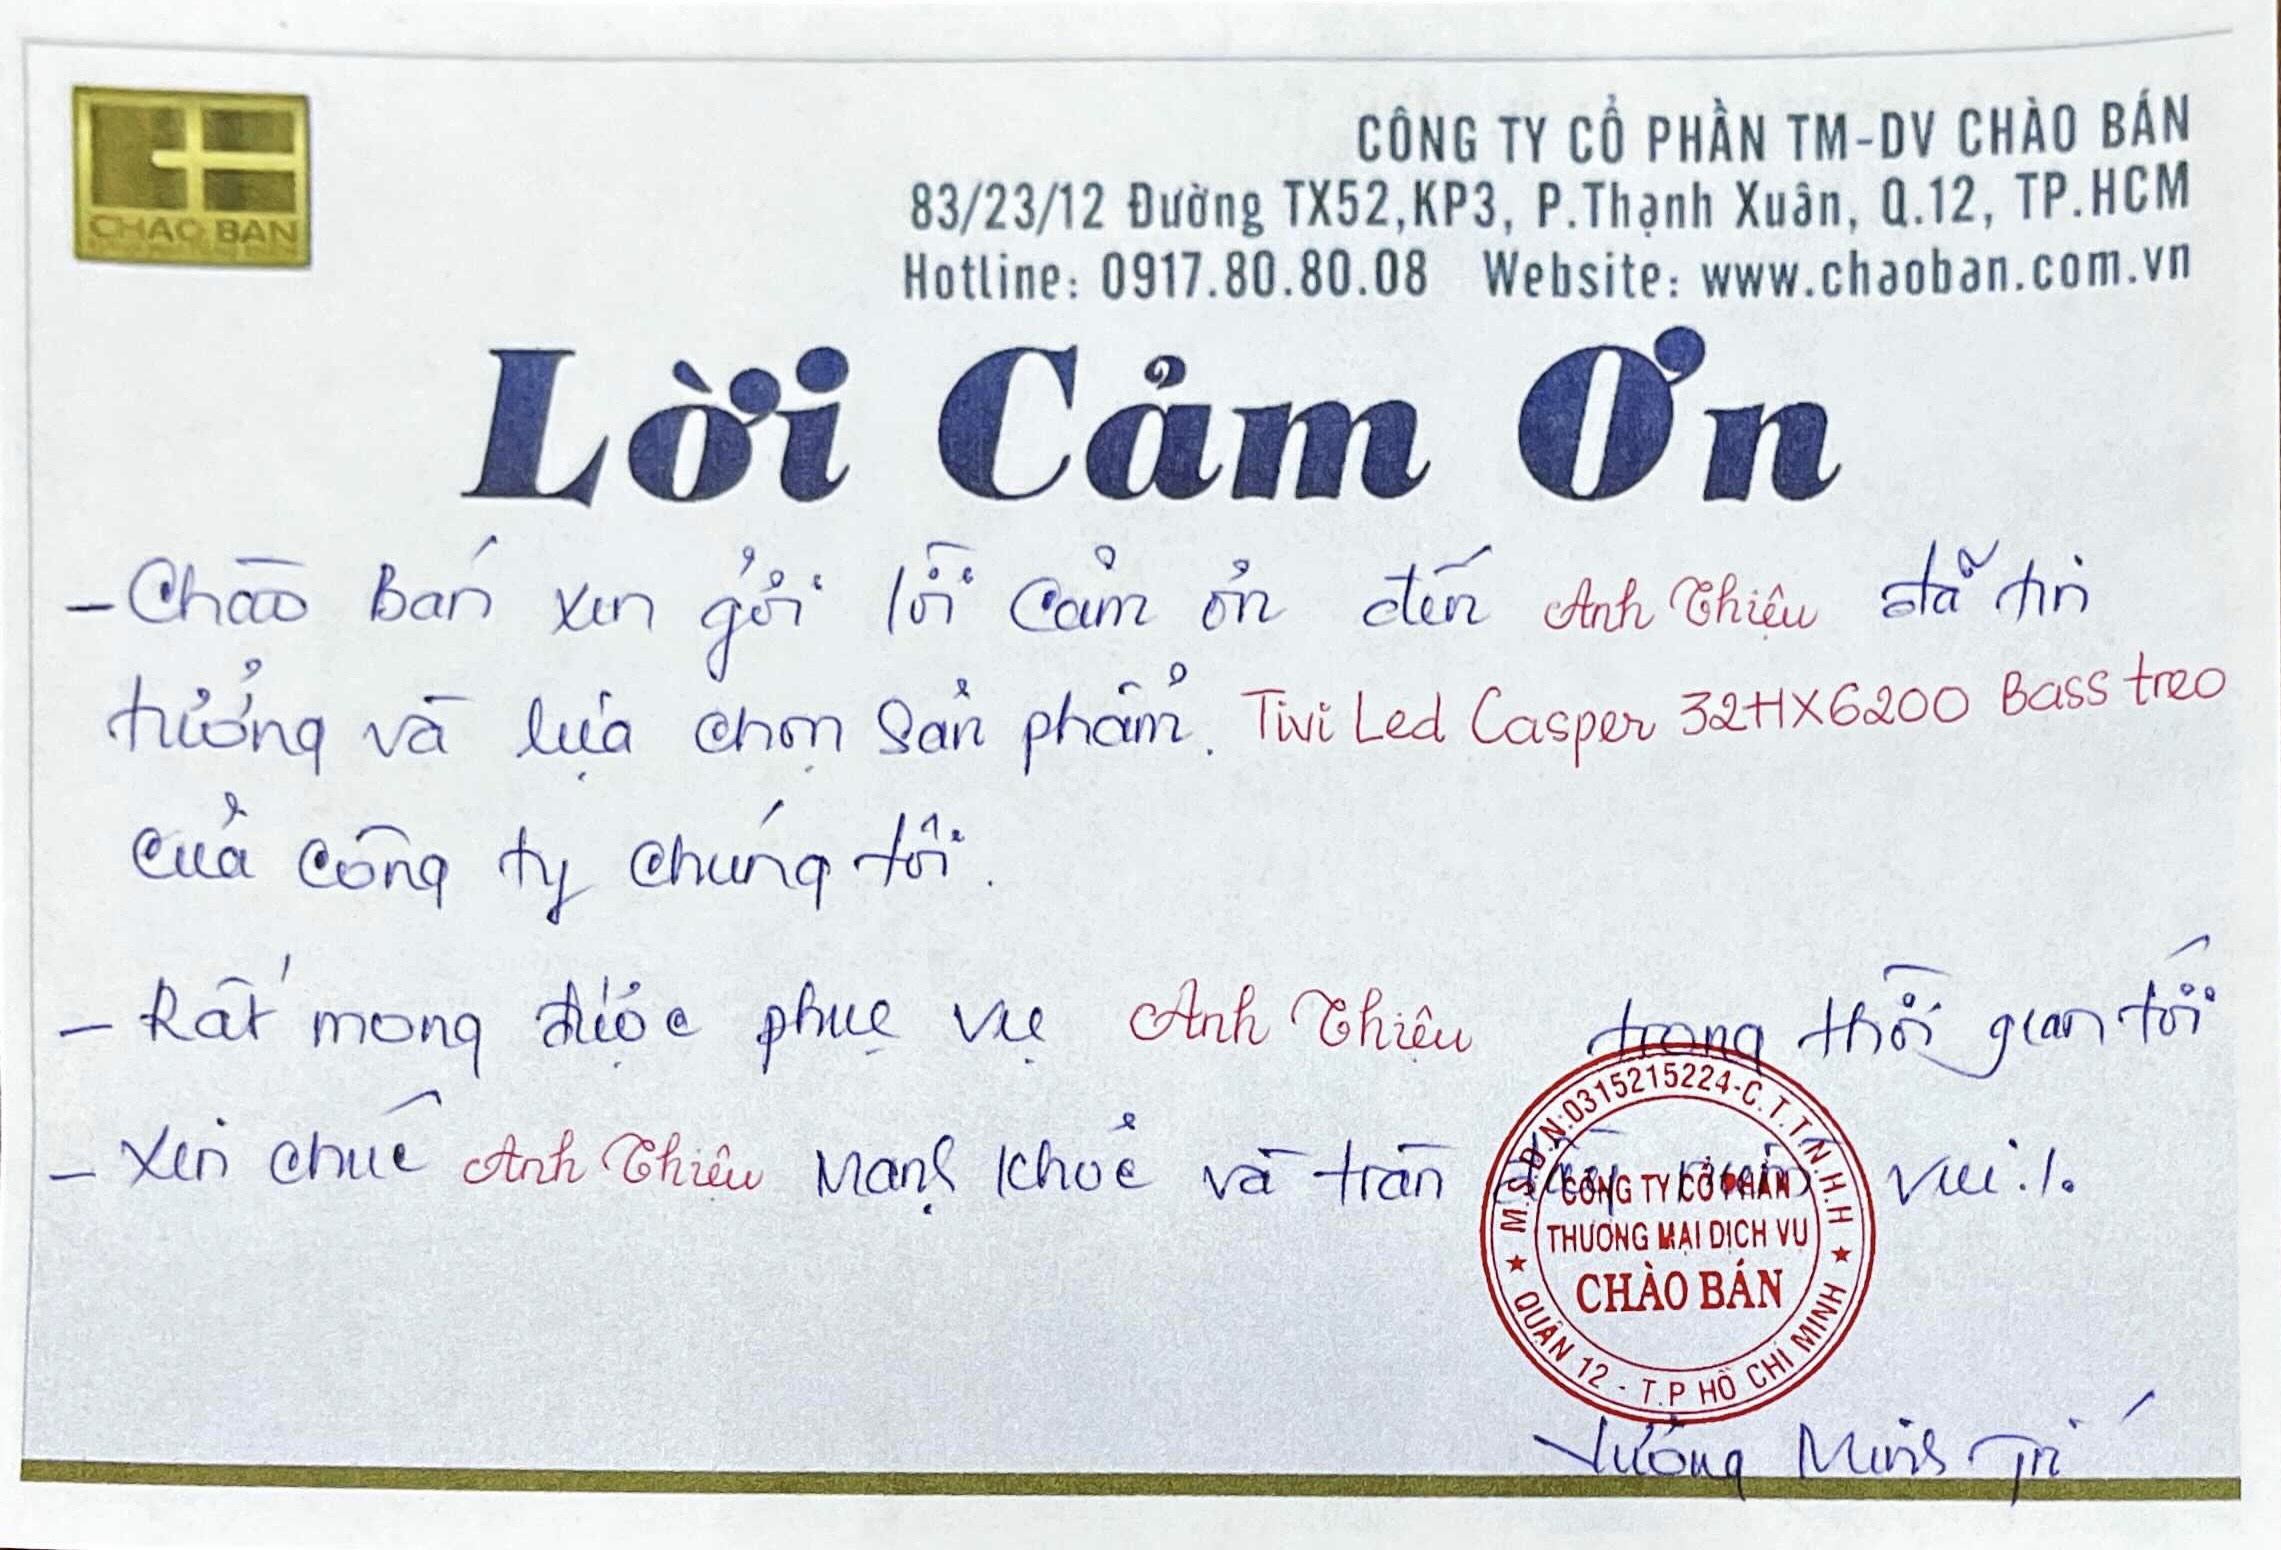 CHAO BAN
CÔNG TY CỔ PHẦN TM-DV CHÀO BÁN
83/23/12 Đường TX52,KP3, P.Thạnh Xuân, Q.12, TP.HCM
Hotline: 0917.80.80.08 Website: www.chaoban.com.vn
Lời Cảm Ơn
- Chào Bán xin gởi lời cảm ơn đến Anh Thiệu đã tin
tưởng và lựa chọn sản phẩm. Tivi Led Casper 32HX6200 Bass treo
của công ty chúng tôi.
- Rất mong được phục vụ Anh Thiệu trong thời gian tới
- Xin chúc Anh Thiệu mạnh khỏe và tràn đầy niềm vui./.
M.S.D.N:0315215224-C.T.T.N.H.H
CÔNG TY CỔ PHẦN
THƯƠNG MẠI DỊCH VỤ
CHÀO BÁN
QUẬN 12 - T.P HỒ CHÍ MINH
Minh Trí